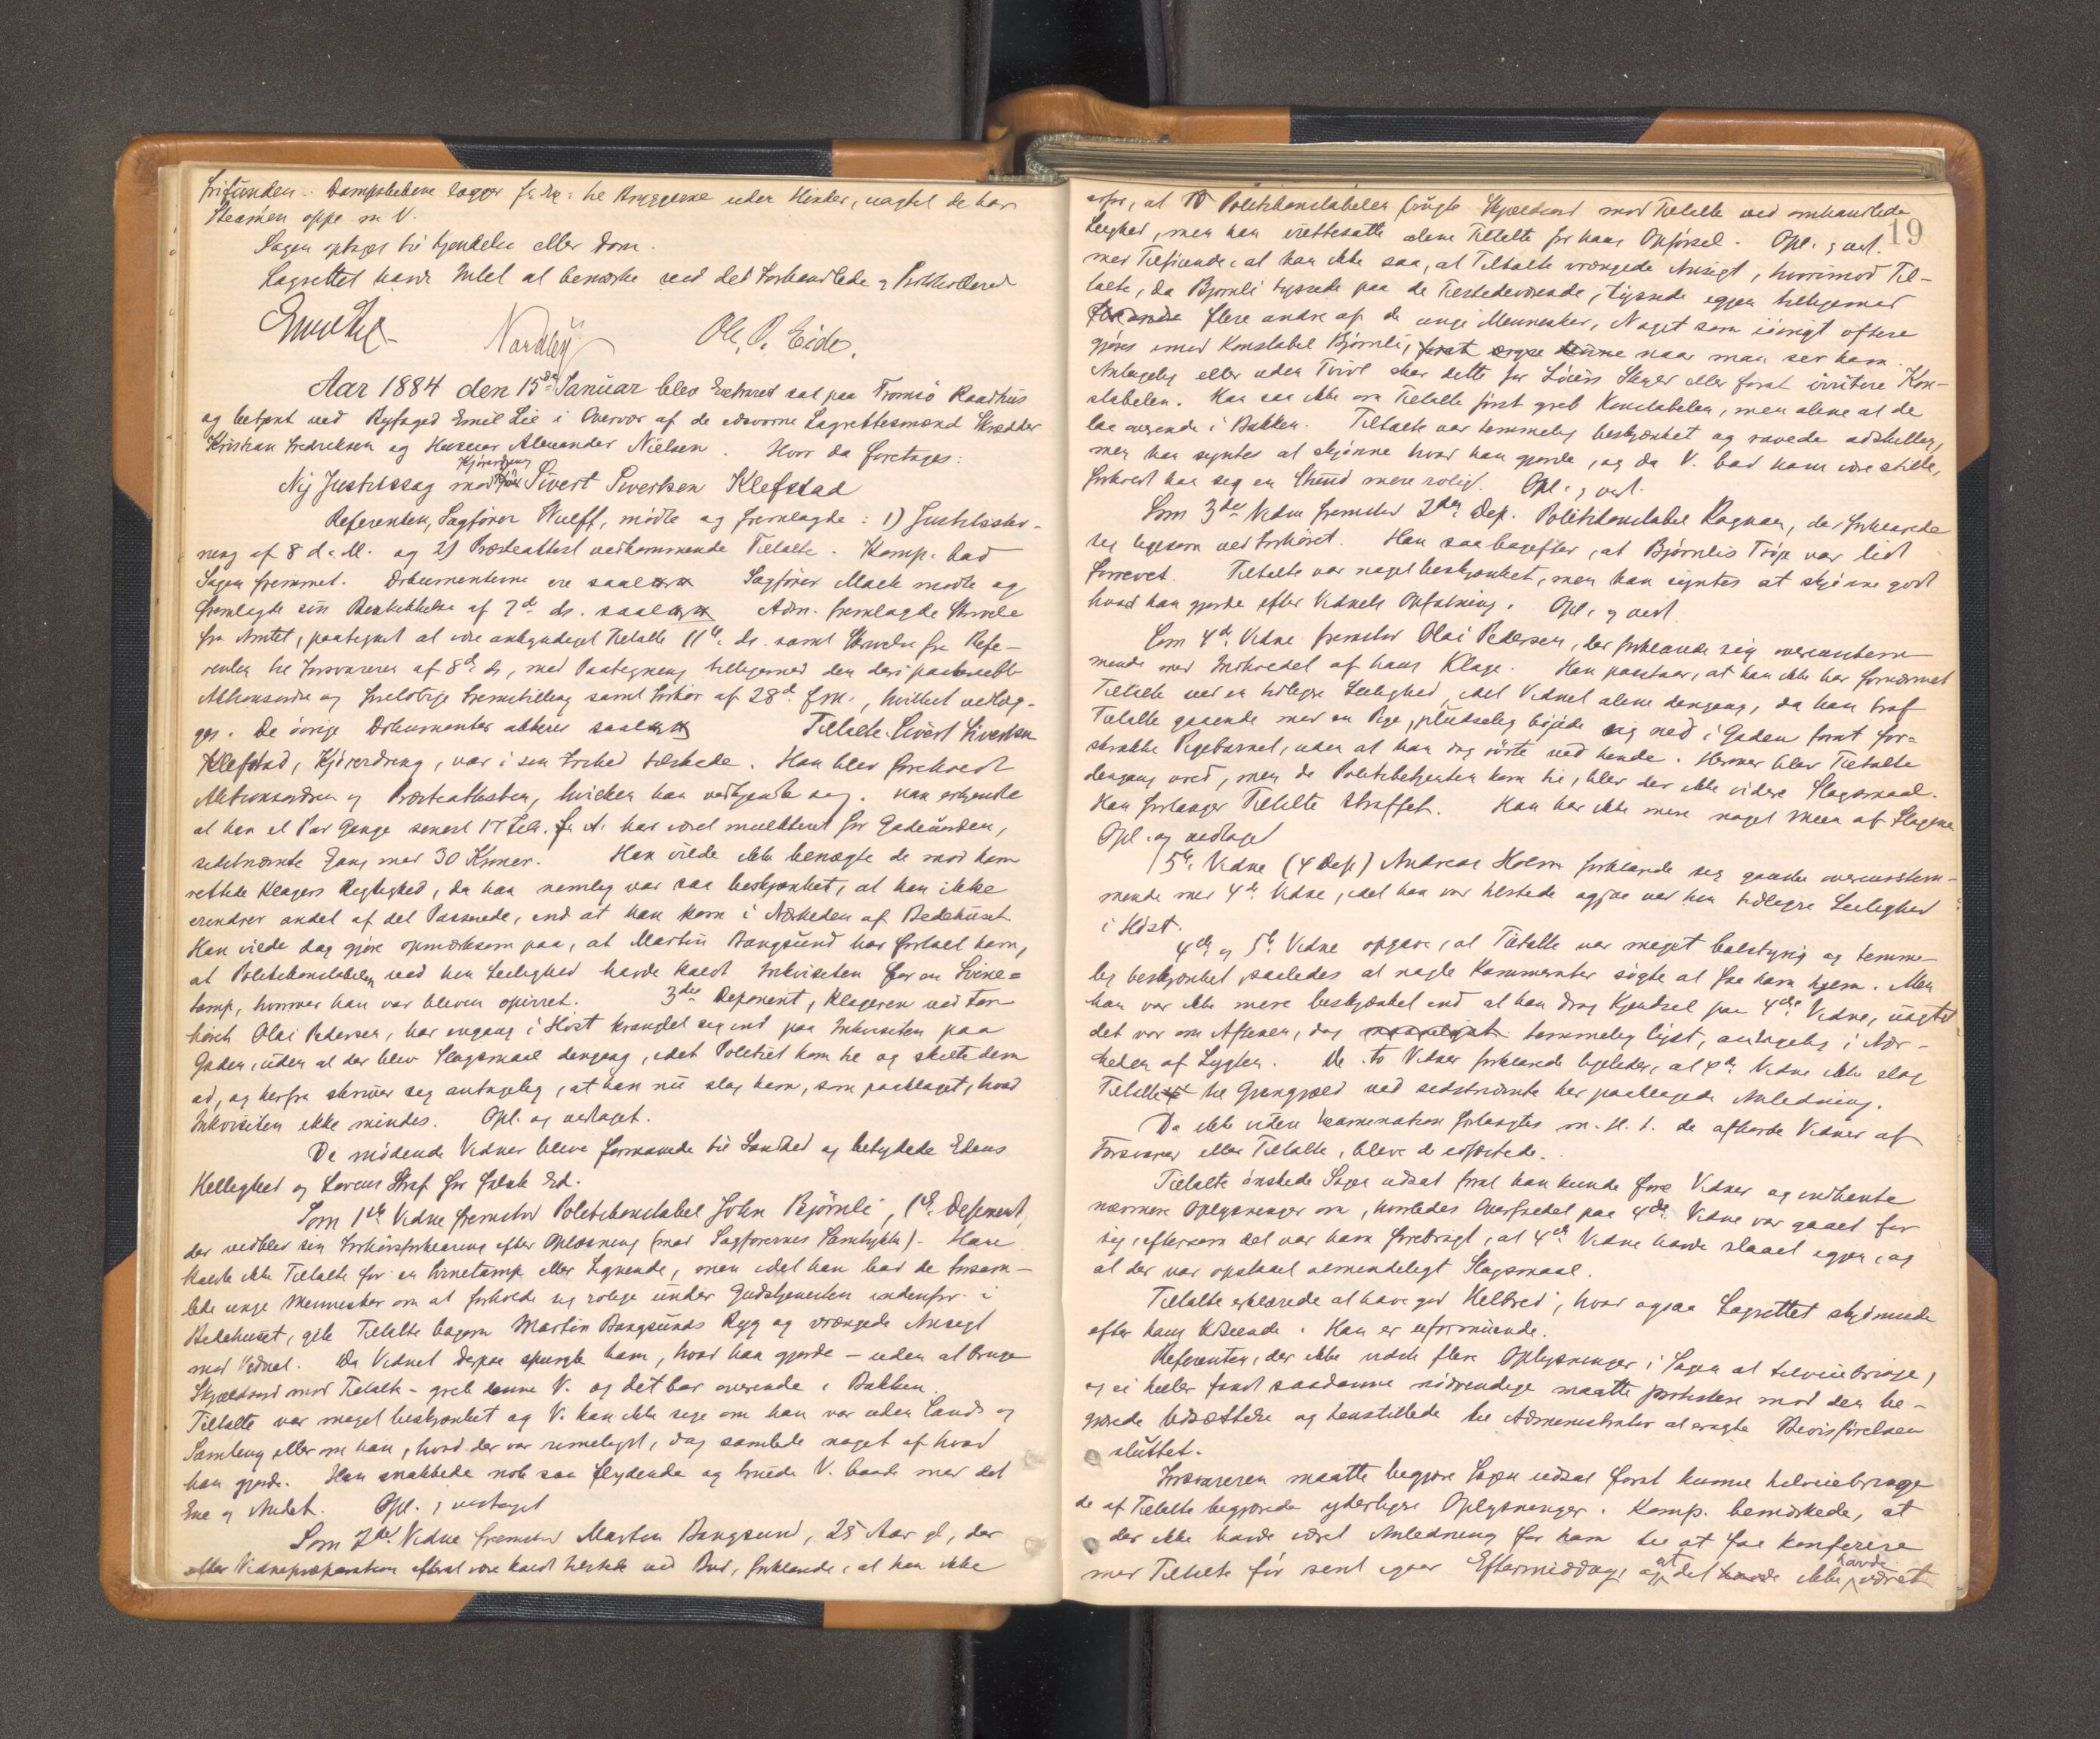 frifunden. Dampskibene lægger f. Ex. til Bryggerne uden Hinder, uagtet de har
Steamen oppe m V.
Sagen optoges til Kjendelse eller Dom.
Lagrettet havde Intet at bemærke ved det Forhandlede & Protokollerede
Emil Lie
Nordbye
Ole P. Eide.
Aar 1884 den 15de Januar blev Extraret sat paa Tromsø Raadhus
og betjent ved Byfoged Emil Lie i Overvær af de edsvorne Lagrettesmænd Skrædder
Kristian Fredriksen og Huseier Alexander Nielsen. Hvor da foretoges:
Kjøredreng
Ny Justitssag mod Sivert Sivertsen Klefstad
Referenten, Sagfører Wulff, mødte og fremlagde: 1) Justitsstev-
ning af 8 d. M. og 2) Præsteattest vedkommende Tiltalte. Komp. bad
Sagen fremmet. Dokumenterne ere saal. Sagfører Mack mødte og
fremlagde sin Beskikkelse af 7de ds. saal. Adm. fremlagde Skrivelse
fra Amtet, paategnet at være ankyndiget Tiltalte 11te ds. samt Skrivelse fra Refe-
renten til Forsvareren af 8de ds, med Paategning tilligemed den deri paaberaabte
Aktionsordre og foreløbige Fremstilling samt Forhør af 28de f.M., hvilket vedlæg-
ges. De øvrige Dokumenter akteres saal. Tiltalte Sivert Sivertsen
Klefstad, Kjøredreng, var i sin Frihed tilstede. Han blev forelæst
Aktionsordren og Præsteattesten, hvilken han vedkjendte sig. Han erkjendte
at han et Par Gange senest 17 Febr. f. A. har været mulkteret for Gadeuorden,
sidstnævnte Gang med 30 Kroner. Han vilde ikke benægte de mod ham
rettede Klagers Rigtighed, da han nemlig var saa beskjænket, at han ikke
erindrer andet af det Passerede, end at han kom i Nærheden af Bedehuset.
Han vilde dog gjøre opmærksom paa, at Martin Bangsund har fortalt ham,
at Politikonstabelen ved hin Leilighed havde kaldt Inkvisiten for en Svine-
tamp, hvorover han var bleven opirret. 3die Deponent, Klageren ved For-
høret Olai Pedersen, har engang i Høst kranglet sig ind paa Inkvisiten paa
Gaden, uden at der blev Slagsmaal dengang, idet Politiet kom til og skilte dem
ad, og herfra skriver sig antagelig, at han nu slog ham, som paaklaget, hvad
Inkvisiten ikke mindes. Opl. og vedtaget.
De mødende Vidner bleve formanede til Sandhed og betydede Edens
Hellighed og Lovens Straf for falsk Ed.
Som 1ste Vidne fremstod Politikonstabel John Bjørnli, 1ste Deponent,
der vedblev sin Forhørsforklaring efter Oplæsning (med Sagførernes Samtykke). Han
kaldte ikke Tiltalte for en Svinetamp eller Lignende, men idet han bad de forsam-
lede unge Mennesker om at forholde sig rolige under Gudstjenesten indenfor i
Bedehuset, gik Tiltalte bagom Martin Bangsunds Ryg og vrængede Ansigt
mod Vidnet. Da Vidnet derpaa spurgte ham, hvad han gjorde – uden at bruge
Skjældsord mod Tiltalte – greb denne V. og det bar overende i Bakken.
Tiltalte var meget beskjænket og V. kan ikke sige om han var uden Sands og
Samling eller om han, hvad der var rimeligst, dog samlede noget af hvad
han gjorde. Han snakkede nok saa flydende og truede V. baade med det
Ene og Andet. Opl. & vedtaget
Som 2det Vidne fremstod Martin Bangsund, 25 Aar gl, der
efter Vidnepræparation efterat være kaldt tilstede ved Bud, forklarede, at han ikke
19
at Politikonstabelen brugte Skjældsord mod Tiltalte ved omhandlede
Leilighed, men han irettesatte alene Tiltalte for hans Opførsel. Opl. & vedt.
med Tilføiende, at han ikke saa, at Tiltalte vrængede Ansigt, hvorimod Til-
talte, da Bjørnli hyssede paa de Tilstedeværende, hyssede igjen tilligemed
flere andre af de unge Mennesker, Noget som iøvrigt oftere
gjøres imod Konstabel Bjørnli, naar man ser ham.
Antagelig eller uden Tvivl sker dette for Løiers Skyld eller forat irritere Kon-
stabelen. Han saa ikke om Tiltalte først greb Konstabelen, men alene at de
laa overende i Bakken. Tiltalte var temmelig beskjænket og ravede adskillig,
men han syntes at skjønne hvad han gjorde, og da V. bad ham være stille,
forholdt han sig en Stund mere rolig. Opl. & vedt.
Som 3die Vidne fremstod 2den Dep. Politikonstabel Ragnar, der forklarede
sig ligesom ved Forhøret. Han saa bagefter, at Bjørnlis Trøje var lidt
forrevet. Tiltalte var noget beskjænket, men han syntes at skjønne godt
hvad han gjorde efter Vidnets Opfatning. Opl. & vedt
Som 4de Vidne fremstod Olai Pedersen, der forklarede sig overensstem-
mende med Indholdet af hans Klage. Han paastaar, at han ikke har fornærmet
Tiltalte ved en tidligere Leilighed, idet Vidnet alene dengang, da han traf
Tiltalte gaaende med en Pige, pludselig bøjede sig ned i Gaden forat for-
skrække Pigebarnet, uden at han dog rørte ved hende. Herover blev Tiltalte
dengang vred, men da Politibetjenten kom til, blev der ikke videre Slagsmaal.
Han forlanger Tiltalte straffet. Han har ikke mere noget Meen af Slagene
Opl. og vedtaget
5te Vidne (4 Dep) Andreas Holm forklarede sig ganske overensstem-
mende med 4de Vidne, idet han var tilstede ogsaa ved hin tidligere Leilighed
i Høst.
4de og 5te Vidne opgave, at Tiltalte var meget balstyrig og temme-
lig beskjænket, saaledes at nogle Kammerater søgte at faa ham hjem. Men
han var ikke mere beskjænket end at han drog Kjendsel paa 4de Vidne, uagtet
det var om Aftenen, dog temmelig lyst, antagelig i Nær-
heden af Lygten. De to Vidner forklarede ligeledes, at 4de Vidne ikke slog
Tiltalte til Gjengjæld ved sidstnævnte her paaklagede Anledning.
Da ikke videre Examination forlangtes m. H. t. de afhørte Vidner af
Forsvarer eller Tiltalte, bleve de edfæstede.
Tiltalte ønskede Sagen udsat forat han kunde føre Vidner og indhente
nærmere Oplysninger om, hvorledes Overfaldet paa 4de Vidne var gaaet for
sig, eftersom det var ham forebragt, at 4de Vidne havde slaaet igjen, og
at der var opstaaet almindeligt Slagsmaal.
Tiltalte erklærede at have god Helbred, hvad ogsaa Lagrettet skjønnede
efter hans Udseende. Han er uformuende.
Referenten, der ikke vidste flere Oplysninger i Sagen at tilveiebringe,
og ei heller fandt saadanne nødvendige maatte protestere mod den be-
gjærede Udsættelse og henstillede til Administrator at eragte Bevisførelsen
sluttet.
Forsvareren maatte begjære Sagen udsat forat kunne tilveiebringe
de af Tiltalte begjærede yderligere Oplysninger. Komp. bemærkede, at
der ikke havde været Anledning for ham til at faa konferere
med Tiltalte før sent igaar Eftermiddag, og at det ikke havde været